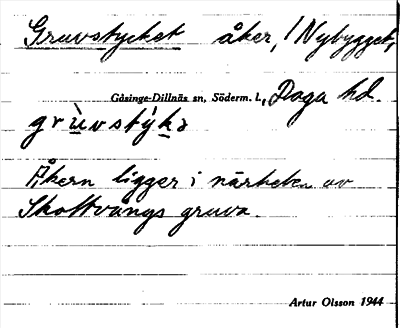 Gruvstycket åker, / Nybygget,
Gåsinge-Dillnäs sn, Söderm. l., Daga hd.
grùvstýkə
Åkern ligger i närheten av
Skottvångs gruva.
Artur Olsson 1944